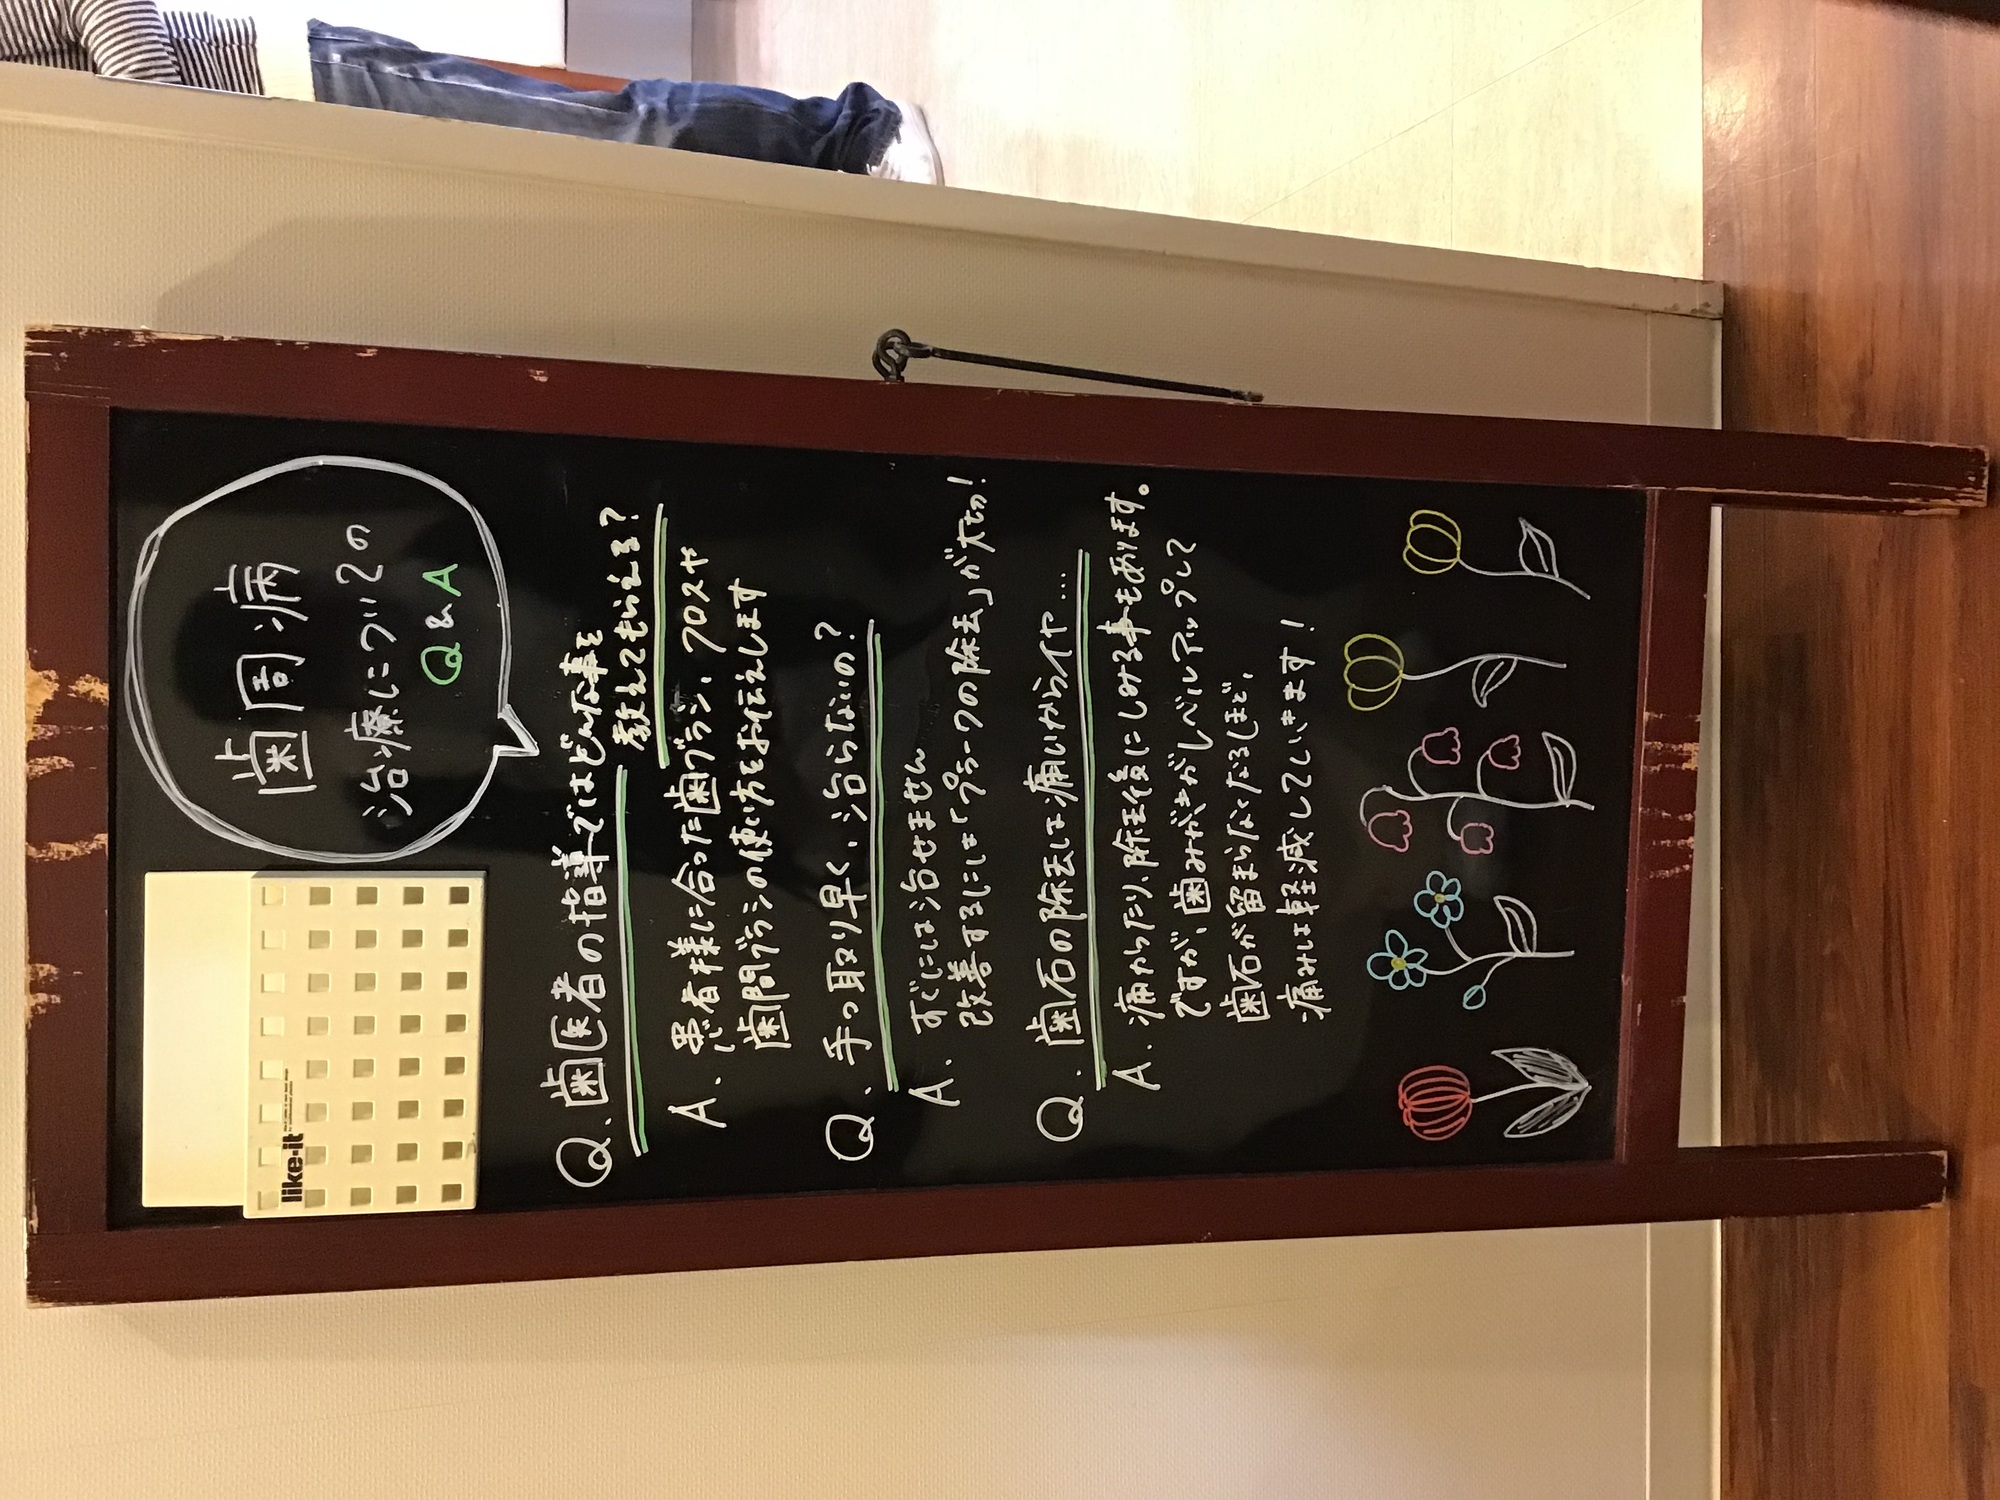 歯周病
治療についての
Q & A
like-it
Q. 歯医者の指導ではどんな事を
教えてもらえる?
A. 患者様に合った歯ブラシ、フロスや
歯間ブラシの使い方をお伝えします
Q. 手っ取り早く、治らないの?
A. すぐには治せません
改善するには「プラークの除去」が大切!
Q. 歯石の除去は痛いからイヤ…
A. 痛かったり、除去後にしみる事もあります。
ですが、歯みがきがレベルアップして
歯石が留まらなくなるほど、
痛みは軽減していきます!